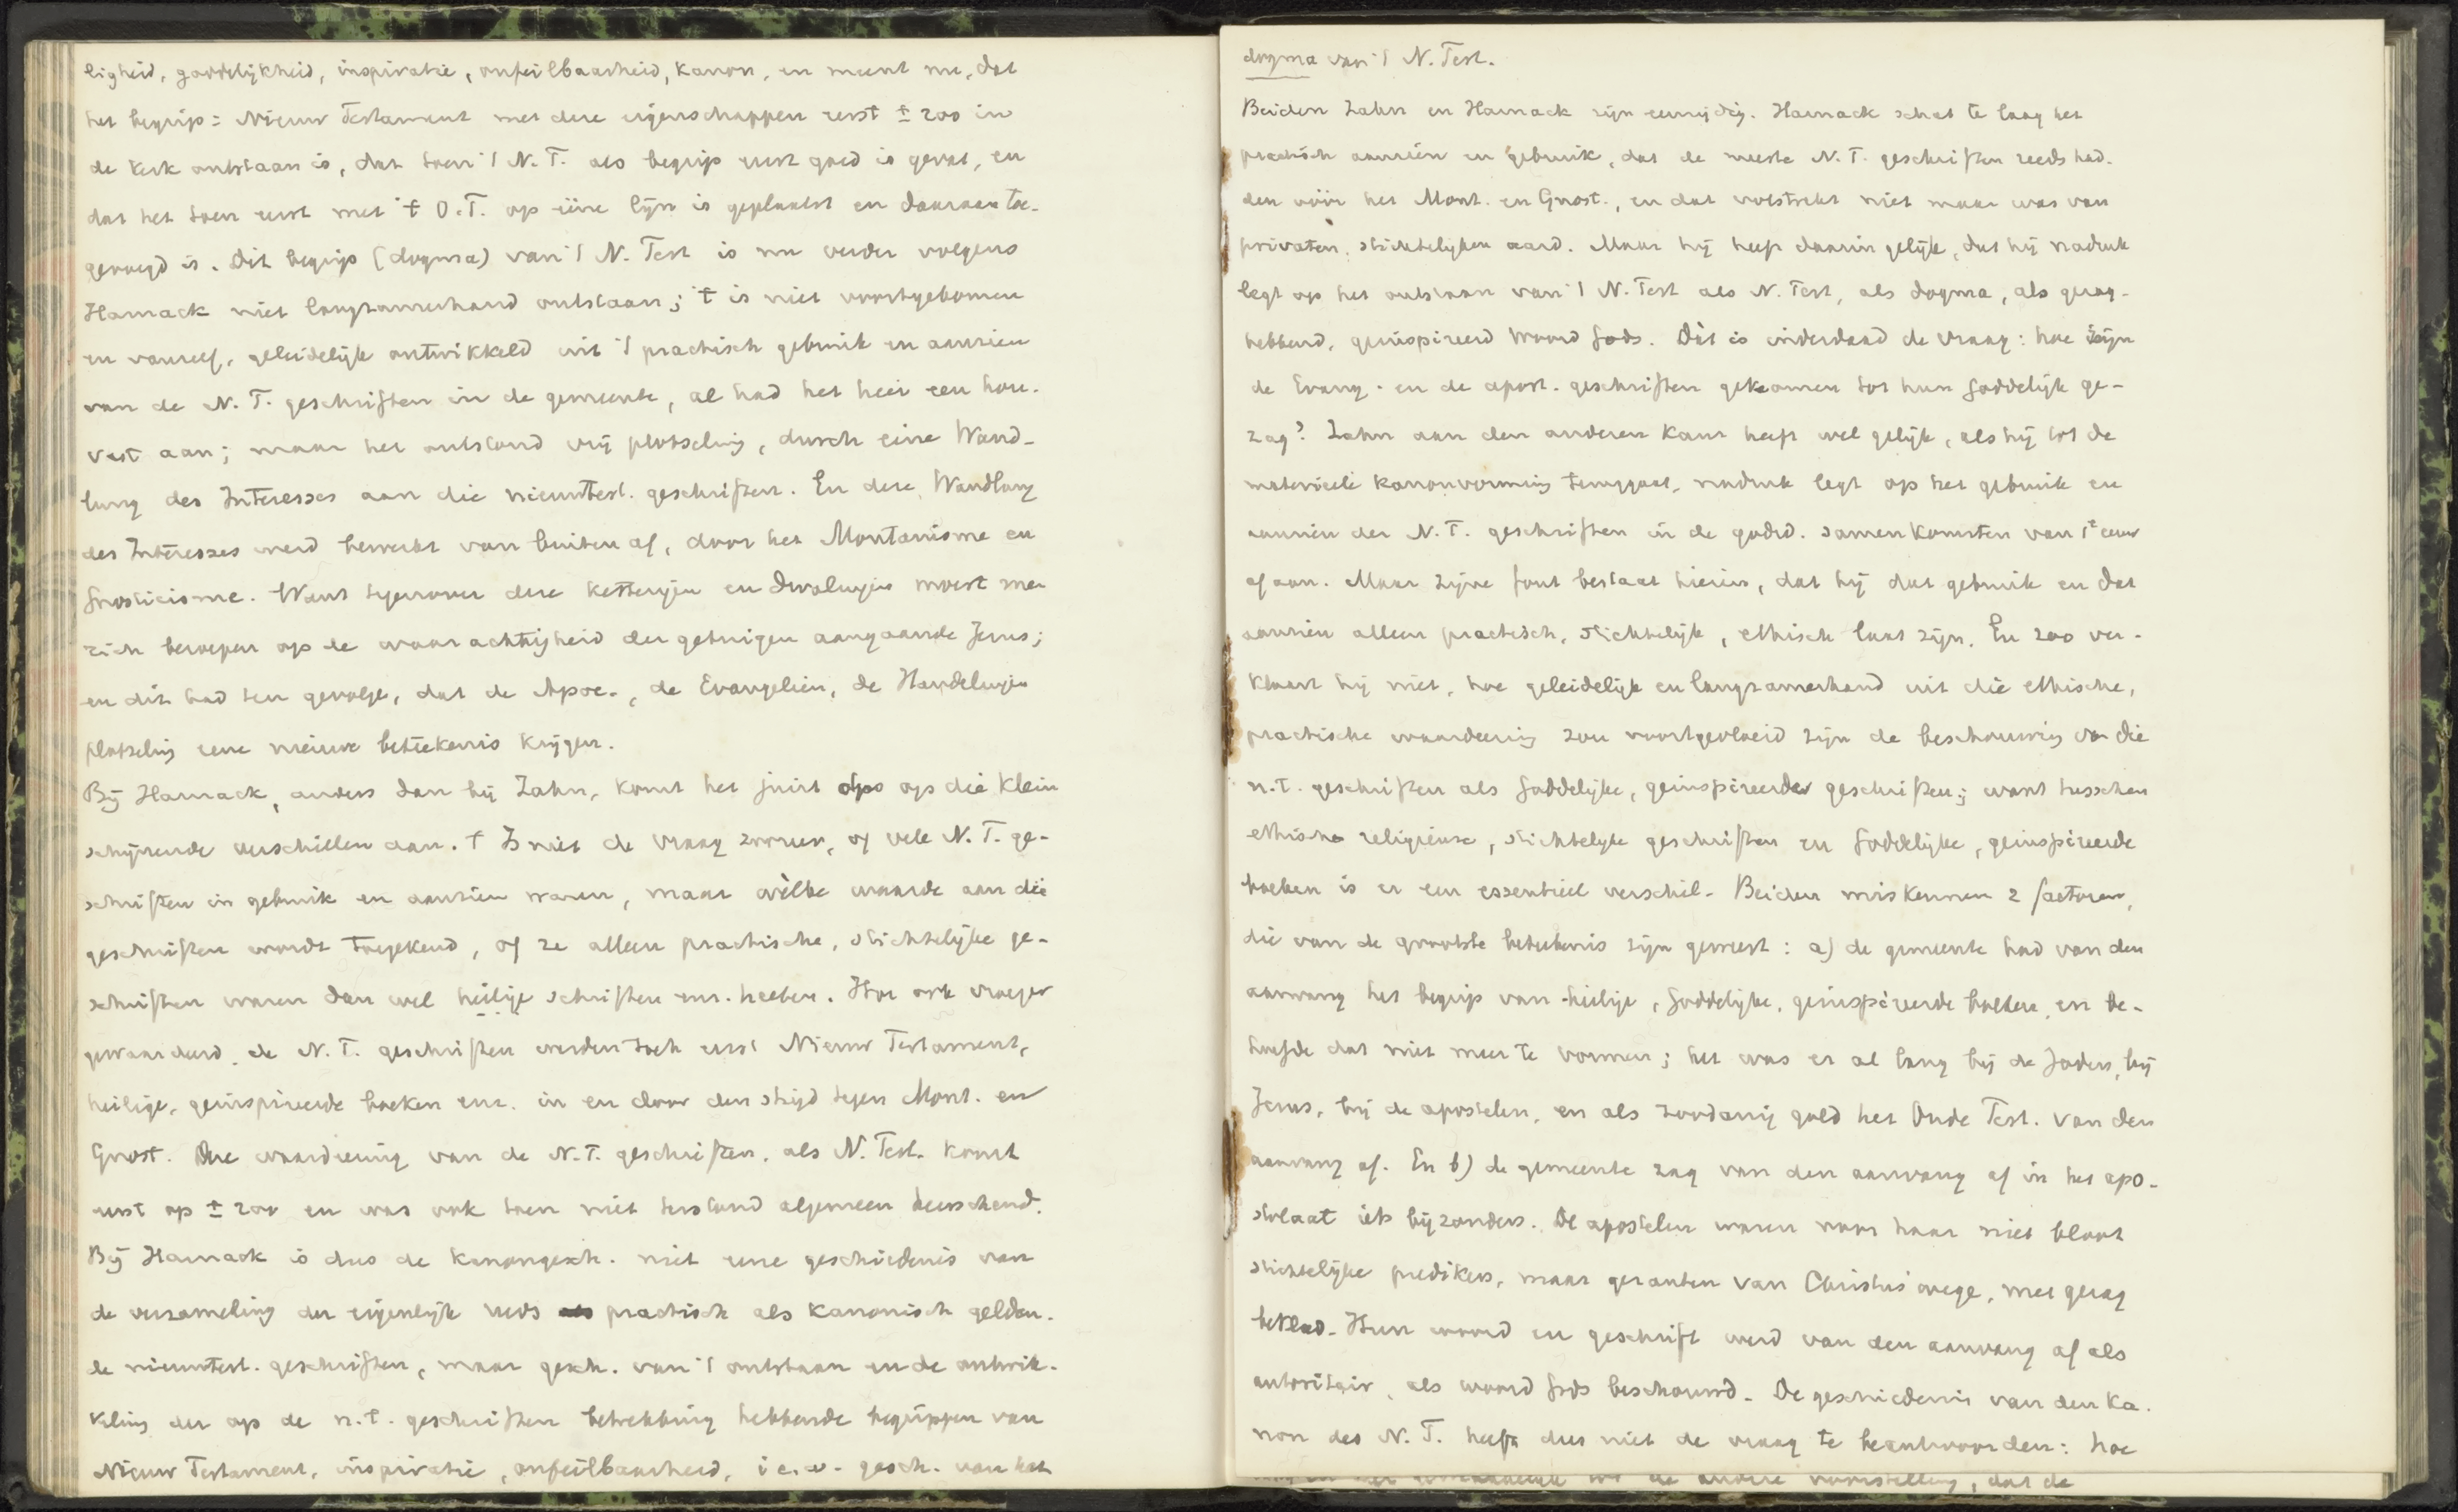 ligheid, goddelijkheid, inspiratie, onfeilbaarheid, kanon, en meent nu, dat
het begrip: Nieuw Testament met deze eigenschappen eerst ± 200 in
de kerk ontstaan is, dat toen 't N. T. als begrip eerst goed is gevat, en
dat het toen eerst met 't O.T. op ééne lijn is geplaatst en daaraan toe-
gevoegd is. Dit begrip (dogma) van 't N. Test is nu verder volgens
Harnack niet langzamerhand ontstaan; 't is niet voortgekomen
en vanzelf, geleidelijk ontwikkeld uit 't practisch gebruik en aanzien
van de N. T. geschriften in de gemeente, al had het hier een hou-
vast aan; maar het ontstond vrij plotseling, durch eine Wand-
lung des Interesses aan die nieuwtest. geschriften. En deze Wandlung
des Interesses werd bewerkt van buiten af, door het Montanisme en
Gnosticisme. Want tegenover deze ketterijen en dwalingen moest men
zich beroepen op de waarachtigheid der getuigen aangaande Jezus;
en dit had ten gevolge, dat de Apoc., de Evangeliën, de Handelingen
plotseling eene nieuwe beteekenis krijgen.
Bij Harnack, anders dan bij Zahn, komt het juist op die klein
schijnende verschillen aan. 't Is niet de vraag zoozeer, of vele N. T. ge-
schriften in gebruik en aanzien waren, maar wèlke waarde aan die
geschriften wordt toegekend, of ze alleen practische, stichtelijke ge-
schriften waren dan wel heilige schriften enz. heeten. Hoe ook vroeger
gewaardeerd, de N. T. geschriften werden toch eerst Nieuw Testament,
heilige, geïnspireerde boeken enz. in en door den strijd tegen Mont. en
Gnost. Die waardeering van de N.T. geschriften, als N. Test. komt
eerst op ± 200 en was ook toen niet terstond algemeen heerschend.
Bij Harnack is dus de kanongesch. niet eene geschiedenis van
de verzameling der eigenlijk reeds practisch als kanonisch gelden-
de nieuwtest. geschriften, maar gesch. van 't ontstaan en de ontwik-
keling der op de n.t. geschriften betrekking hebbende begrippen van
Nieuw Testament, inspiratie, onfeilbaarheid, i.e.w. gesch. van het
dogma van 't N. Test.
Beiden Zahn en Harnack zijn eenzijdig. Harnack schat te laag het
practisch aanzien en gebruik, dat de meeste N. T. geschriften reeds had-
den vóór het Mont. en Gnost., en dat volstrekt niet maar was van
privaten, stichtelijken aard. Maar hij heeft daarin gelijk, dat hij nadruk
legt op het ontstaan van 't N. Test als N. Test, als dogma, als gezag-
hebbend, geïnspireerd Woord Gods. Dàt is inderdaad de vraag: hoe zijn
de Evang. en de apost. geschriften gekomen tot hun Goddelijk ge-
zag? Zahn aan den anderen kant heeft wel gelijk, als hij tot de
materieele kanonvorming teruggaat, nadruk legt op het gebruik en
aanzien der N. T. geschriften in de godsd. samenkomsten van 1e eeuw
af aan. Maar zijne fout bestaat hierin, dat hij dat gebruik en dat
aanzien alleen practisch, stichtelijk, ethisch laat zijn. En zoo ver-
klaart hij niet, hoe geleidelijk en langzamerhand uit die ethische,
practische waardeering zou voortgevloeid zijn de beschouwing van die
n.t. geschriften als Goddelijke, geïnspireerde geschriften; want tusschen
ethische religieuse, stichtelijke geschriften en Goddelijke, geïnspireerde
boeken is er een essentieel verschil. Beiden miskennen 2 factoren,
die van de grootste beteekenis zijn geweest: a) de gemeente had van den
aanvang het begrip van heilige, Goddelijke, geïnspireerde boeken, en be-
hoefde dat niet meer te vormen; het was er al lang bij de Joden, bij
Jezus, bij de apostelen, en als zoodanig gold het Oude Test. van den
aanvang af. En b) de gemeente zag van den aanvang af in het apo-
stolaat iets bijzonders. De apostelen waren voor haar niet bloot
stichtelijke predikers, maar gezanten van Christus' wege, met gezag
bekleed. Hun woord en geschrift werd van den aanvang af als
autoritair, als woord Gods beschouwd. De geschiedenis van den ka-
non des N. T. heeft dus niet de vraag te beantwoorden: hoe
de andere voorstelling, dat de